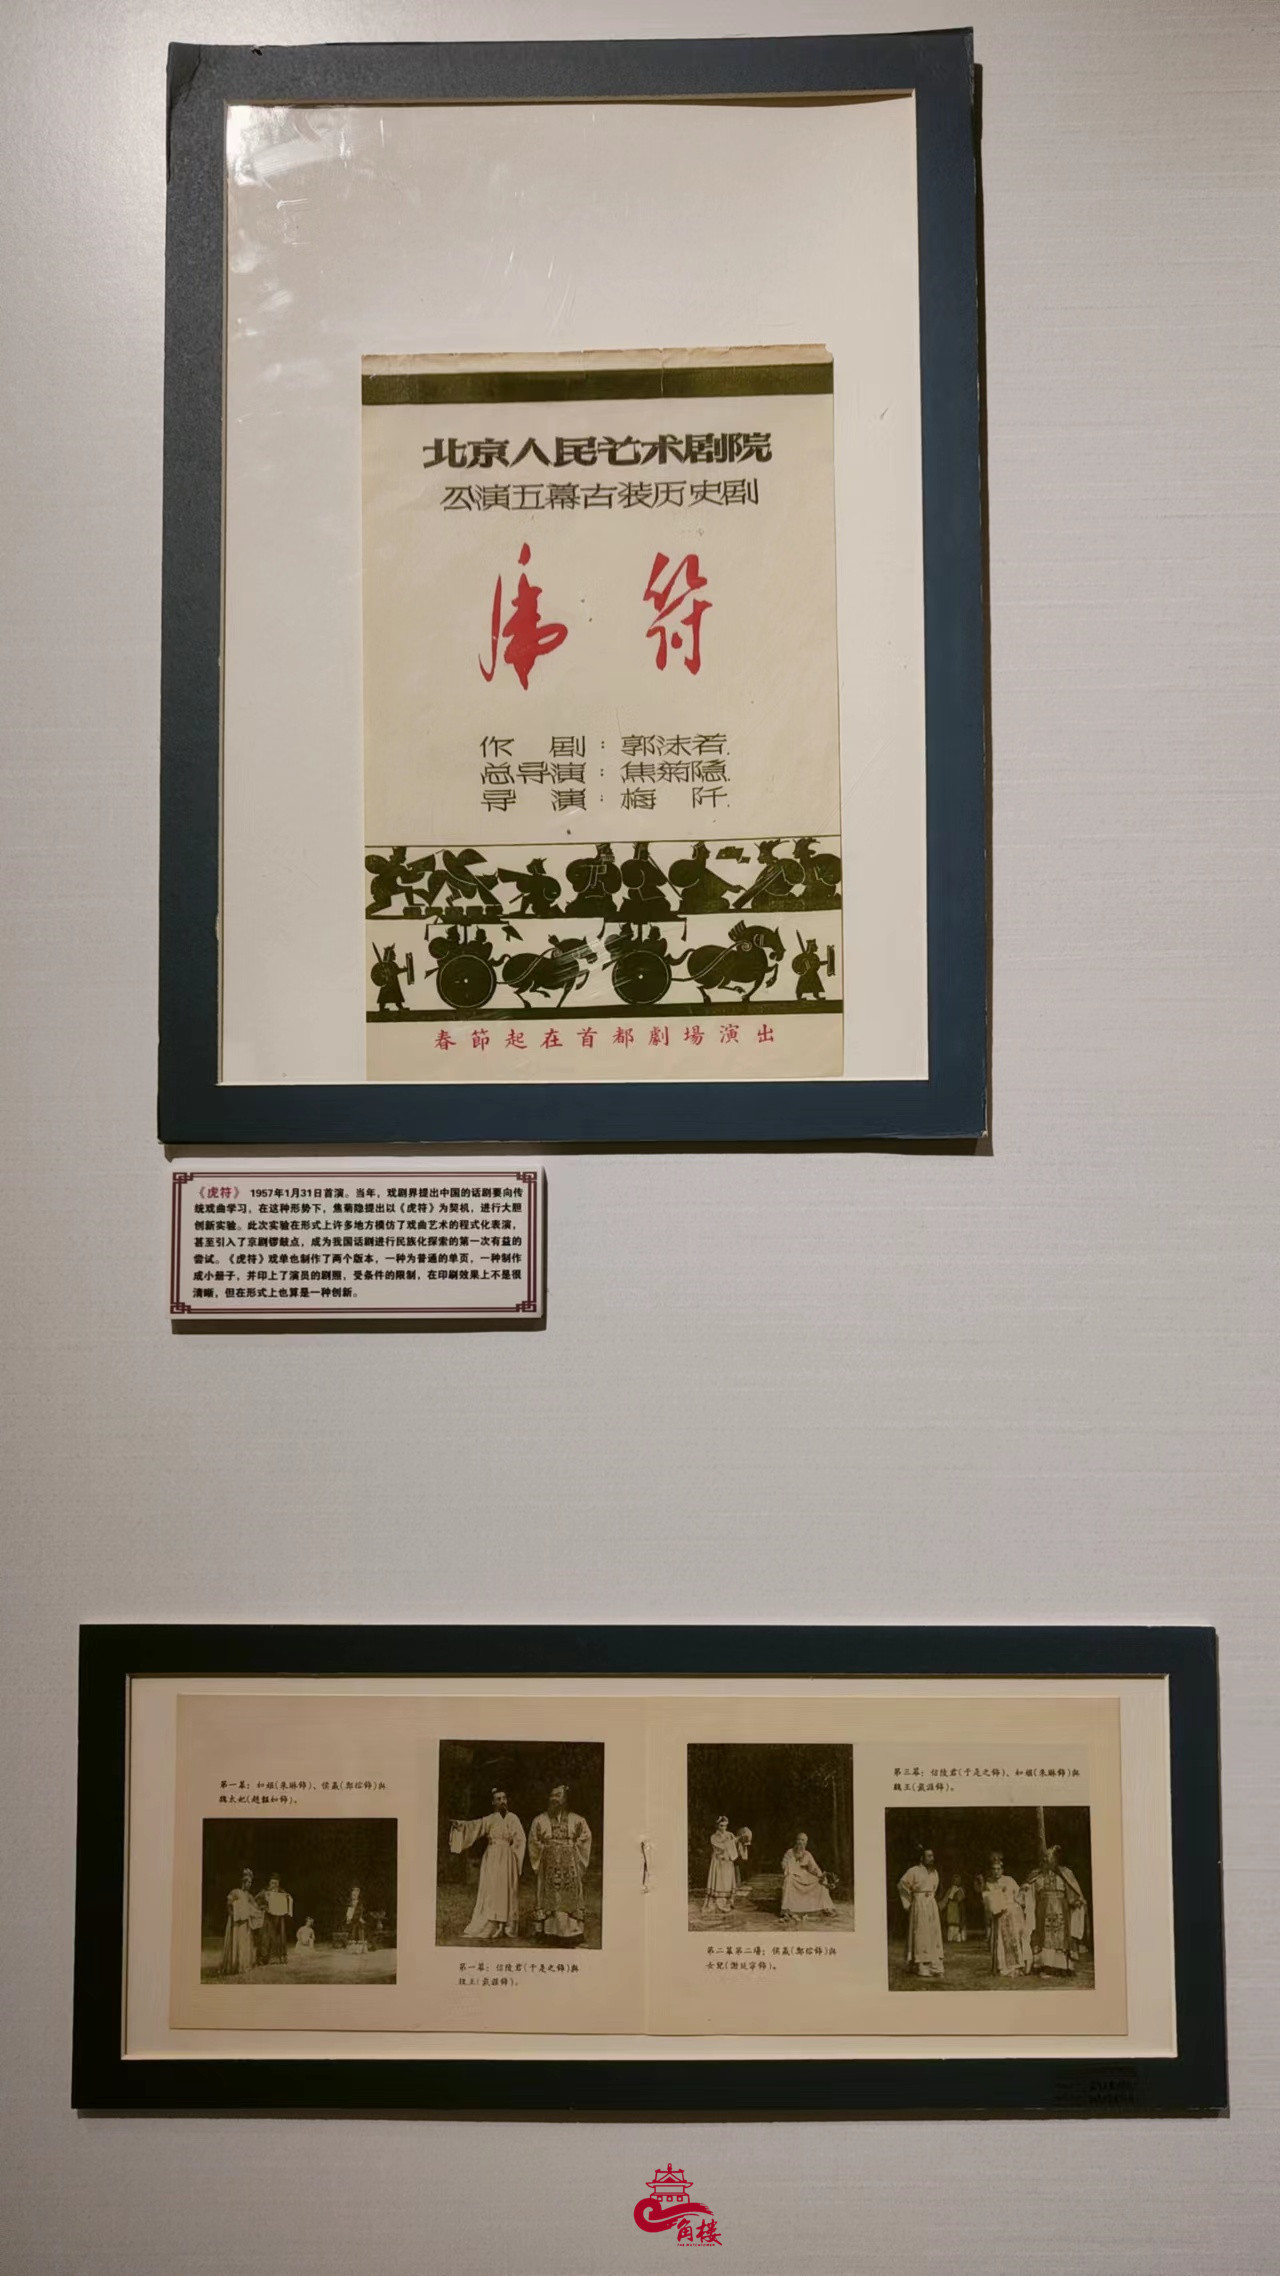 北京人民艺术剧院
公演五幕古装历史剧
虎符
作 剧：郭沫若
总导演：焦菊隐
导 演：梅 阡
春節起在首都劇場演出
《虎符》 1957年1月31日首演。当年，戏剧界提出中国的话剧要向传
统戏曲学习，在这种形势下，焦菊隐提出以《虎符》为契机，进行大胆
创新实验。此次实验在形式上许多地方模仿了戏曲艺术的程式化表演，
甚至引入了京剧锣鼓点，成为我国话剧进行民族化探索的第一次有益的
尝试。《虎符》戏单也制作了两个版本，一种为普通的单页，一种制作
成小册子，并印上了演员的剧照，受条件的限制，在印刷效果上不是很
清晰，但在形式上也算是一种创新。
第一幕：如姬(朱琳飾)、侯嬴(鄭榕飾)與
魏太妃(趙韞如飾)。
第一幕：信陵君(于是之飾)與
魏王(戴涯飾)。
第二幕第二場：侯嬴(鄭榕飾)與
女兒(謝延寧飾)。
第三幕：信陵君(于是之飾)、如姬(朱琳飾)與
魏王(戴涯飾)。
角楼